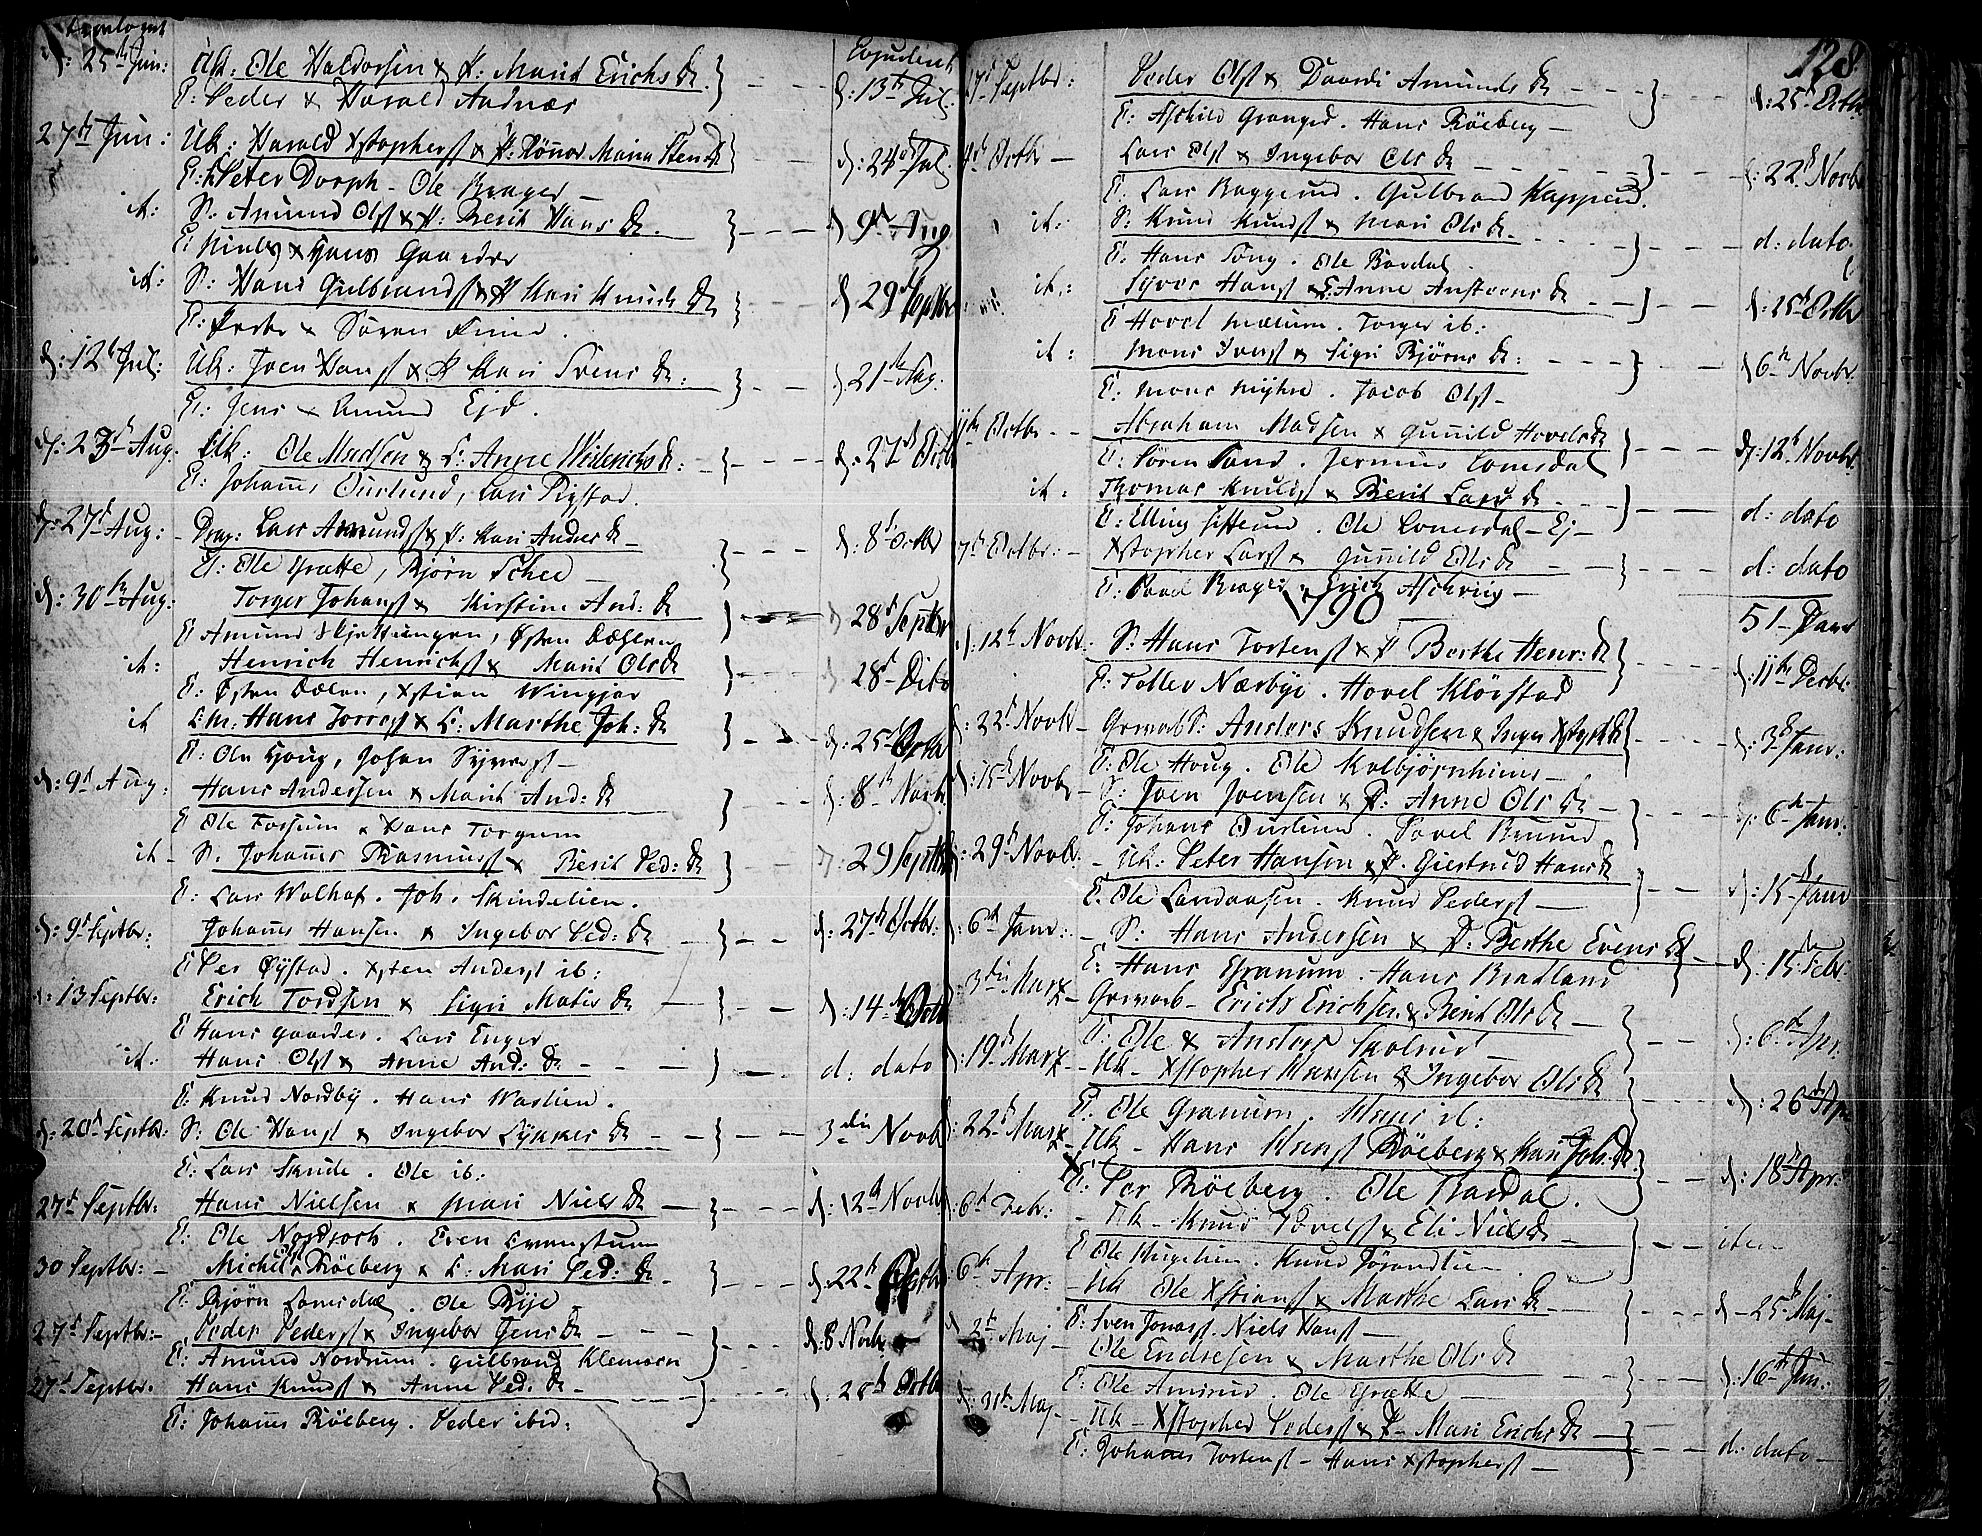 d: 25 Jun: Uk: Ole Haldorsen & P: Marit Erichs dr. d: 13 Jul.
E: Peder & Harald Aadnæs
27 Jun: Uk: Harald Xstophersøn & P: Rønnor Maria Stens dr d: 24 Jul.
E: Peter Dorph - Ole Brager -
it: S: Amund Olss & P: Berit Hans dr. d 9 Aug
E: & Hans Gaarder
it: S: Hans Gulbrands & P Kari Knuds dr d 29 Septbr
E: Peder & Søren Finne.
d: 12 Jul: Uk: Joen Hans & P Kari Svens dr: d 21 Aug.
E: Jens & Amund Ejd.
d: 23 Aug. Uk: Ole Madsen & L: Anne Diderichs dr: d. 27 Octb
E: Johannes Ourlund, Lars Rystad.
d: 27 Aug: Drag: Lars Amunds & P: Kari Anders dr d: 8 Octbr
E: Ole Grætte, Bjørn Schee
d: 30 Aug: Torger Johans & Kirstine And: dr d 28 Septbr
E Amund Skjettungen, Østen Dæhlen
it: Henrich Henrichs & Marit Ols dr d 28 Dito
E: Østen Dælen, Xstian Wingjar
it L: Hans Torres & L: Marthe Joh: dr d: 25 Octb
E: Ole Houg, Johan Syvers
d: 9 Aug: Hans Andersen & Marit And: dr d: 8 Novb
E Ole Fossum & Hans Torgum
it S. Johannes Rasmus & Berit Ped: dr d: 29 Septbr
E: Lars Walhof. Joh. Skindelien.
d: 9 Septbr: Johannes Hansen & Ingebor Ped: dr d: 27 Octbr:
E Per Øystad. Xsten Anders ib:
d: 13 Septbr: Erich Tordsen & Sigri Mathis dr d: 14 Octb
E Hans Gaarder. Lars Enger
it: Hans Ols & Anne And: dr d: dato
E: Knud Nordby. Hans Waslien.
d: 20 Septbr: S: Ole Hans & Ingebor Lykkes dr 3die Novb
E: Lars Skude. Ole ib:
27 Septbr. Hans Nielsen & Mari Niels dr d: 12 Novb
E: Ole Nordsoeb. Even Evenstuen
30 Septbr: Michel Røeberg & L: Mari Ped: dr. d: 22
E: Bjørn Lomsdal. Ole Rye
27 Septbr: Peder Peders & Ingebor Jens dr d: 8 Novbr
E: Amund Nordrum. Gulbrand Klemoen
27 Septbr: Hans Knuds & Anne Ped: dr d: 28 Octbr
E: Johannes Røeberg. Peder ibid:
128
17 Septbr: Peder Ols & Daardi Amunds dr d: 25 Octb
E: Aschild Granged. Hans Røeberg
4 Octbr Lars Ols & Ingebor Ols dr d: 22 Novbr
E. Lars Baggerud. Gulbrand Kappen.
it: S: Knud Knuds & Mari Ols dr. d: dato
E: Hans Toug. Ole Bardal
it: Syver Hans & Anne Anstens dr d: 25 Octbr
E Hovel Mælum. Torger ib:
it: Mons Ivers & Sigri Bjørns dr: d 6 Novbr.
E: Mons Myhre. Jacob Ols
11 Octbr Abraham Madsen & Gunild Hovels dr d: 12 Novbr.
E: Søren Sand. Jermus Lomsdal
it: Thomas Knuds & Berit Lars dr d: dato
E: Elling . Ole Lomsdal - Ej -
7 Octbr: Xstopher Lars & Gunild Ols dr d: dato
E: Povel Brager. Erich Aschvig
1790 51 Par
d: 12 Novbr: S: Hans Tostens & P Berthe Henr: dr d: 11 Decbr:
E: Toller Nærbye. Hovel Klørstad
22 Novbr Grevs: Anders Knudsen & Inger Xstoph dr d: 3 Janr:
E: Ole Houg. Ole Kolbjørnhuus
15 Novbr S: Joen Joensen & P: Anne Ols dr d: 6 Janr:
E: Johans Ourlund. Povel Bruun
29 Novbr. Uk: Peter Hansen & P. Giertrud Hans dr d: 15 Janr
E: Ole Landaasen. Knud Peders
6 Janr: S: Hans Andersen & P. Berthe Evens dr d: 15 Febr:
E: Hans Granum. Hans Bratland
3die Marz Erich Erichsen & Berit Ols dr d: 6 Apr:
E: Ole & Anders Skolrud
19 Marz Uk - Xstopher Hansen & Ingebor Ols dr d: 26 Apr
E. Ole Granum. ib:
22 Marz Uk - Hans Hans Røeberg & Kari Joh: dr. d: 18 Apr:
E: Per Røeberg. Ole Bardal.
6 Febr: Uk - Knud Hovels & Eli Niels dr item
E Ole . Knud Jørandlien
6 Apr: Uk Ole Xstians & Marthe Lars dr d - 25 Maj
E: Sven Jonas. Niels Hans
2 Maj Ole Endresen & Marthe Ols dr d: 16 Jun:
E: Ole Amrud. Ole Grætte
31 Maj Uk - Xstopher Peders & P - Mari Erichs dr d: dato
E: Johannes Tostens - Hans Xstophers